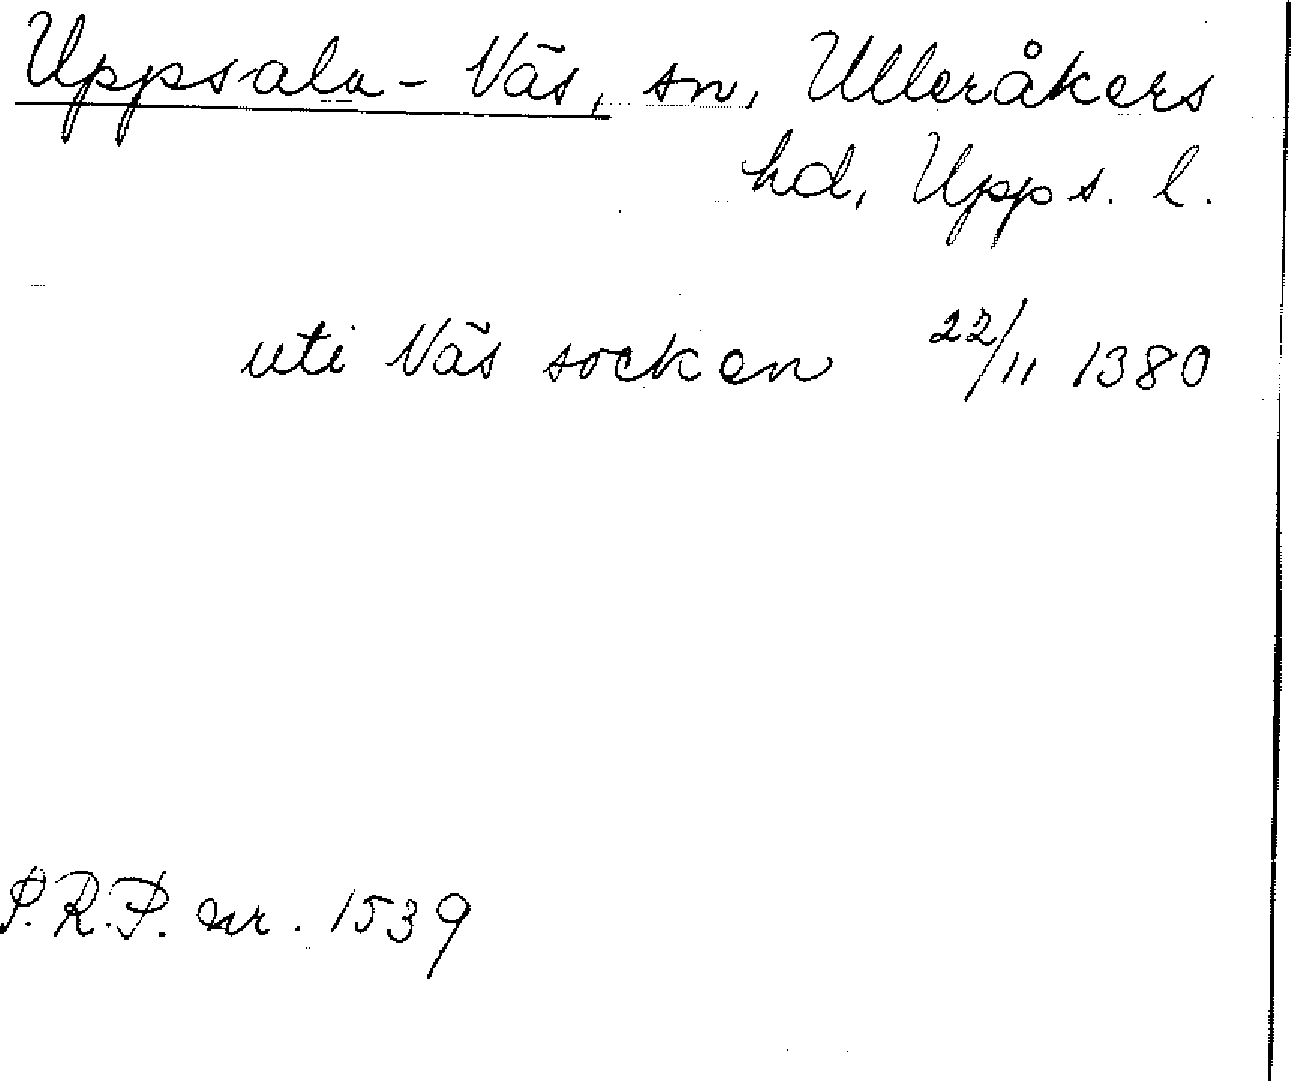 Uppsala-Näs, sn, Ulleråkers
hd, Upps. l.
uti Näs socken 22/11 1380
P.R.P. nr. 1539